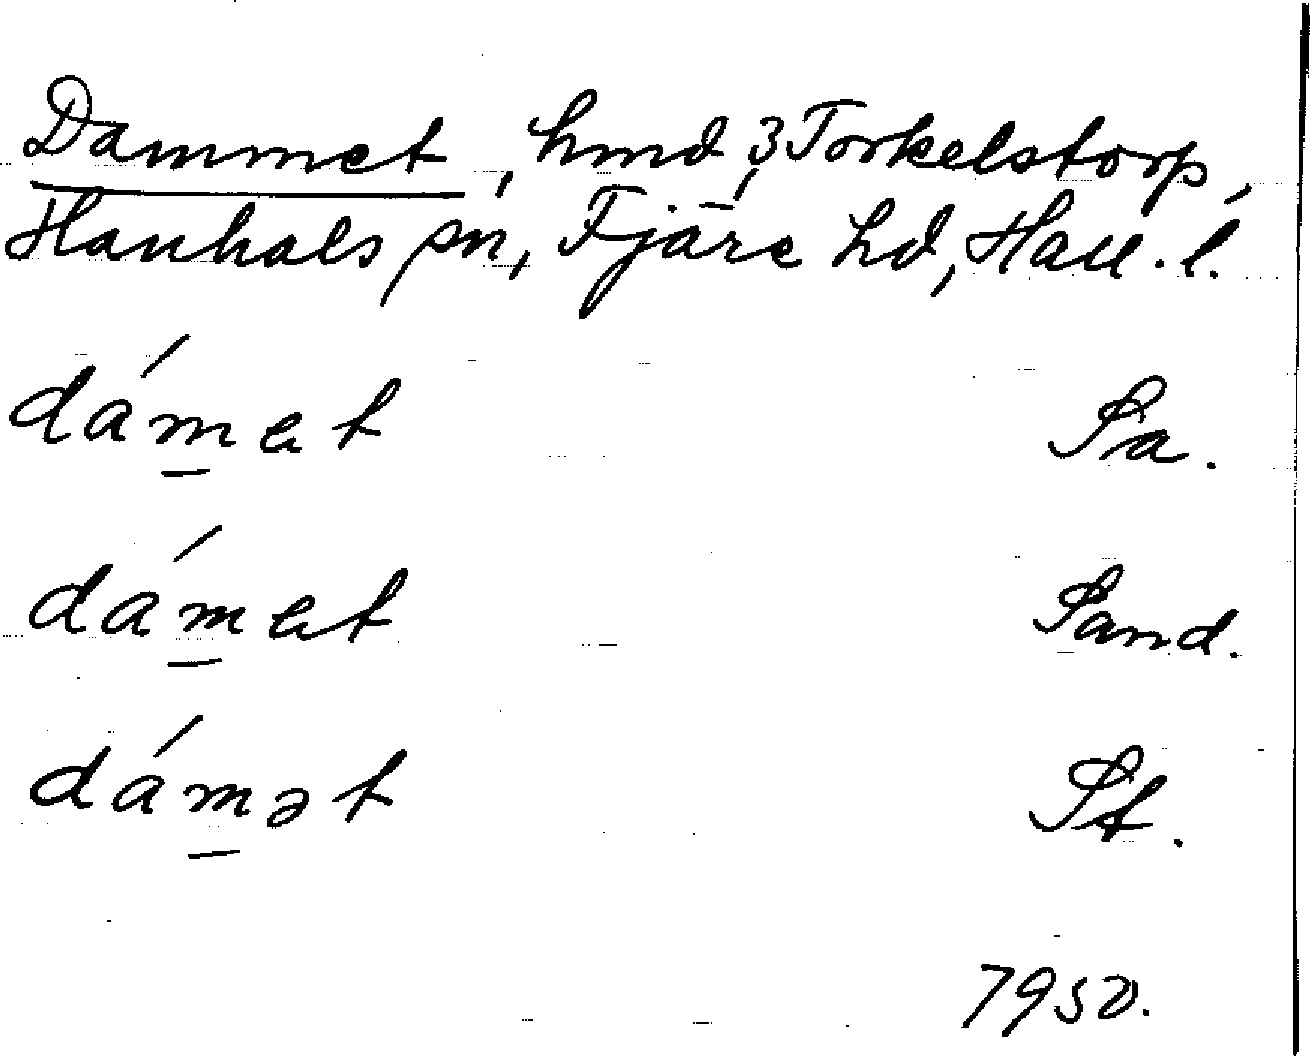 Dammet, hmd, 3 Torkelstorp,
Hanhals sn, Fjäre hd, Hall. l.
dámɐt Sa.
dámɐt Sand.
dámət St.
1950.